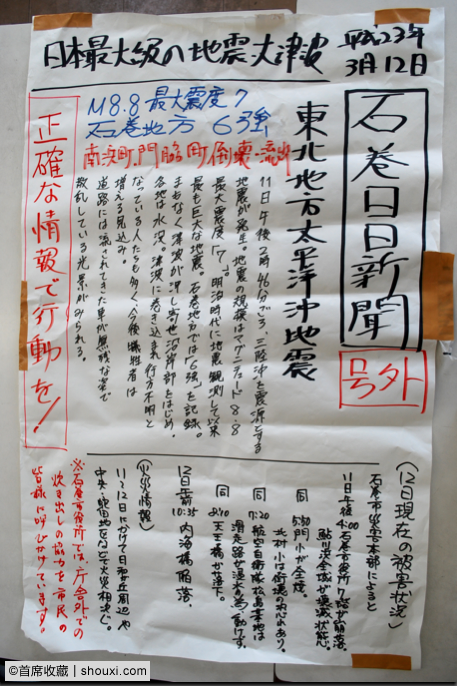 日本最大級の地震・大津波
平成23年
3月12日
石巻日日新聞
号外
東北地方太平洋沖地震
M8.8 最大震度7
石巻地方 6強
南浜町、門脇町 倒壊・流出
正確な情報で行動を!
11日午後2時46分ごろ、三陸沖を震源とする
地震が発生。地震の規模はマグニチュード8.8
最大震度「7」。明治時代に地震観測して以来
最も巨大な地震。石巻地方では「6強」を記録。
まもなく津波が押し寄せ沿岸部をはじめ、
各地は水没。津波に巻き込まれ行方不明と
なっている人たちも多く、今後犠牲者は
増える見込み。
道路には流されてきた車が無残な姿で
散乱している光景がみられる。
(12日現在の被害状況)
石巻市災害本部によると
11日午後4:00 石巻市役所7階が崩落。
鮎川浜全域が壊滅状態。
同 5:30 門小が全焼。
北上小は倒壊の恐れあり。
同 7:20 航空自衛隊松島基地は
滑走路が浸水の為動けず。
同 天王橋が落下。
12日午前
10:35 内海橋陥落。
(火災情報)
11〜12日にかけて日和が丘周辺や
中央・蛇田地区などで火災相次ぐ。
※石巻市役所では、庁舎外での
炊き出しの協力を市民の
皆様に呼びかけています。
©首席收藏 | shouxi.com